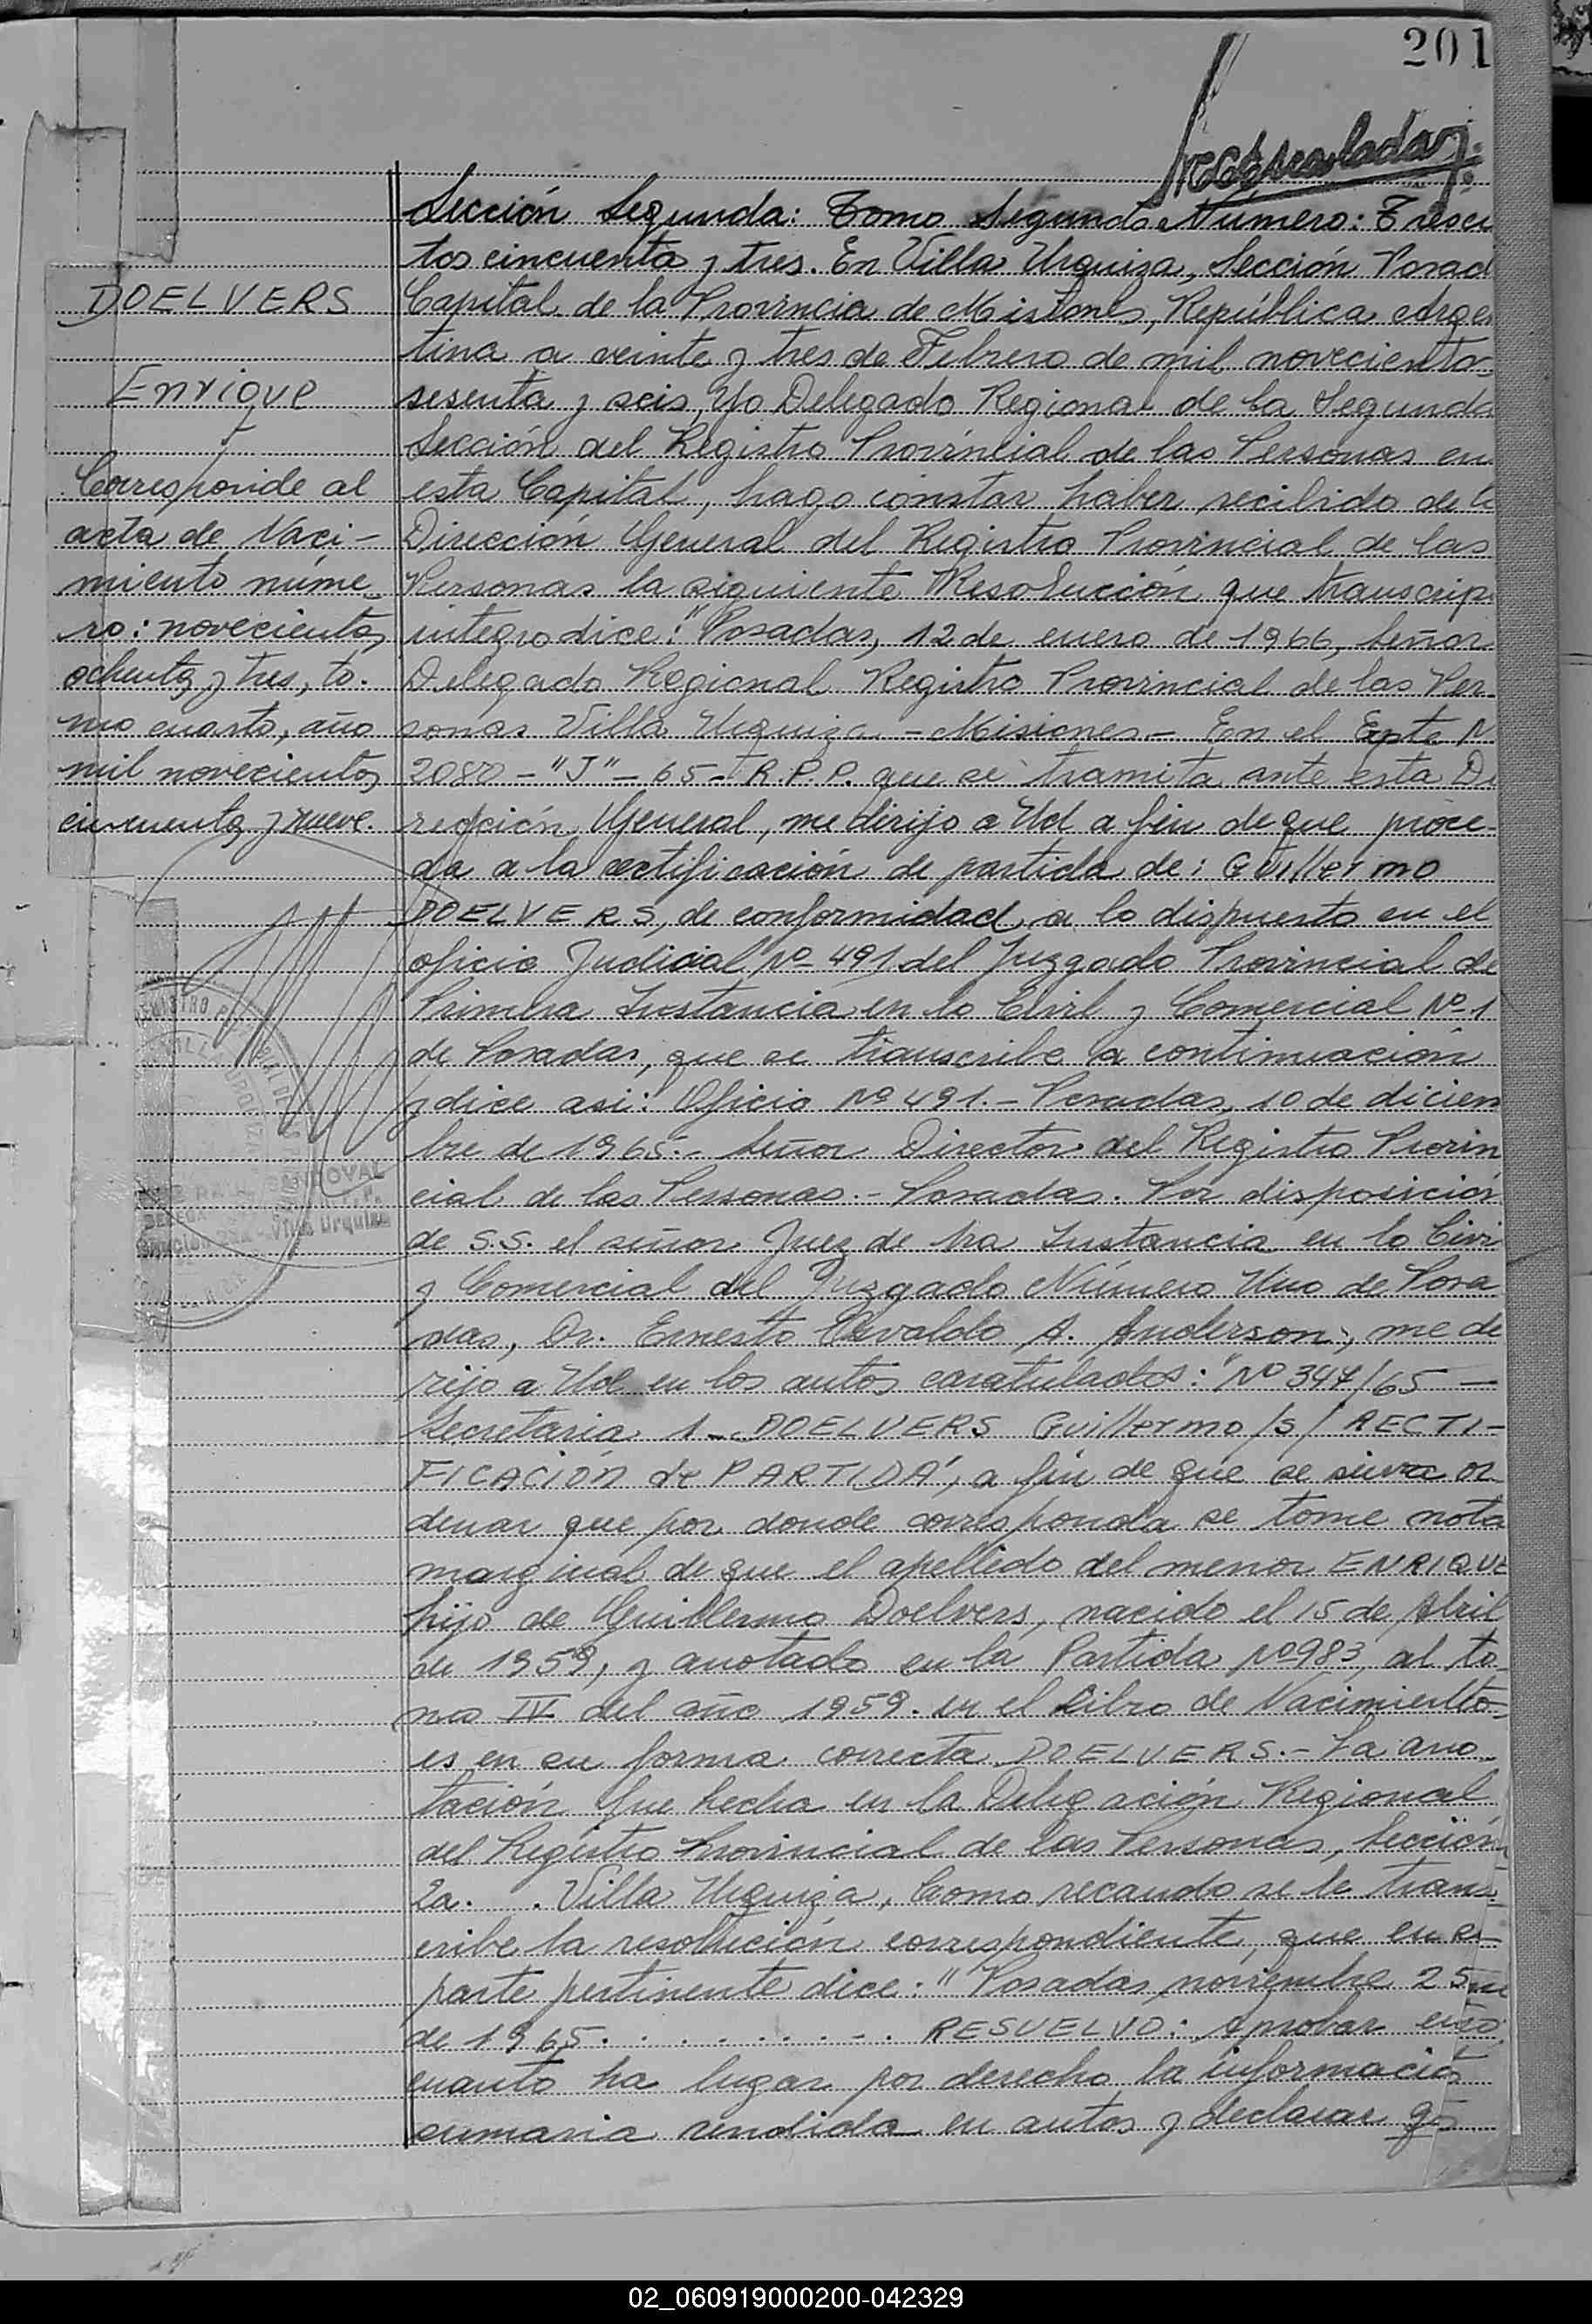 201
Sección Segunda: Tomo Segundo Número: Tresci
tos cincuenta y tres. En Villa Urquiza, Sección Posad
Capital de la Provincia de Misiones, República Argen
tina a veinte y tres de Febrero de mil novecientos
sesenta y seis, Yo Delegado Regional de la Segunda
Sección del Registro Provincial de las Personas en
esta Capital, hago constar haber recibido de la
Dirección General del Registro Provincial de las
Personas la siguiente Resolución que transcrip
integro dice: "Posadas, 12 de enero de 1966, Señor
Delegado Regional Registro Provincial de las Per-
sonas Villa Urquiza - Misiones - En el Expte N
2080 - "J" - 65 - R.P.P. que se tramita ante esta Di
rección General, me dirijo a Ud a fin de que proce-
da a la rectificación de partida de: Guillermo
DOELVERS, de conformidad a lo dispuesto en el
oficio Judicial Nº 491 del Juzgado Provincial de
Primera Instancia en lo Civil y Comercial Nº 1
de Posadas, que se transcribe a continuación
y dice asi: Oficio Nº 491.- Posadas, 10 de diciem
bre de 1965.- Señor Director del Registro Provin
cial de las Personas.- Posadas. Por disposición
de S.S. el señor Juez de 1ra Instancia en lo Civi
y Comercial del Juzgado Número Uno de Posa
das, Dr. Ernesto Osvaldo A. Anderson, me di
rijo a Ud en los autos caratulados: "Nº 347/65 -
Secretaria 1 - DOELVERS Guillermo /s/ RECTI-
FICACIÓN de PARTIDA", a fin de que se sirva or
denar que por donde corresponda se tome nota
marginal de que el apellido del menor ENRIQUE
hijo de Guillermo Doelvers, nacido el 15 de Abril
de 1959, y anotado en la Partida Nº 983, al to-
mo IV del año 1959. en el Libro de Nacimiento
es en su forma correcta DOELVERS.- La ano-
tación fue hecha en la Delegación Regional
del Registro Provincial de las Personas, Sección
2a. . Villa Urquiza, Como recaudo se le trans-
cribe la resolución correspondiente, que en su
parte pertinente dice: "Posadas, noviembre 25
de 1965. . . . . . . . . RESUELVO: Aprobar en
cuanto ha lugar por derecho la información
sumaria rendida en autos y declarar q
DOELVERS
Enrique
Corresponde al
acta de Naci-
miento núme-
ro: novecientos
ochenta y tres, to-
mo cuarto, año
mil novecientos
cincuenta y nueve.
SANDOVAL
Villa Urquiza
02_060919000200-042329